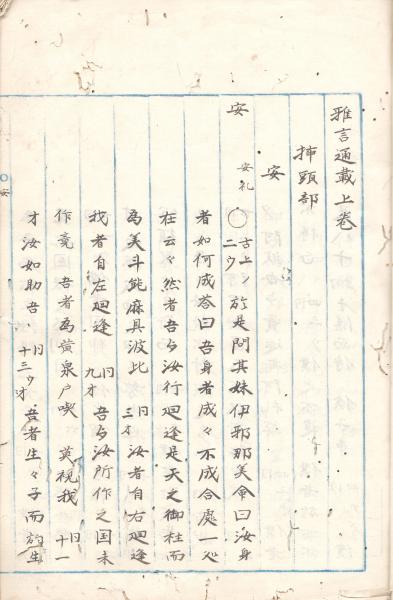 雅言通載上巻
挿頭部
安
安
安礼
○古上ノ二ウ 於是問其妹伊邪那美命曰汝身
者如何成答曰吾身者成々不成合處一处
在云々然者吾与汝行廻逢是天之御柱而
為美斗能麻具波比 同三オ 汝者自右廻逢
我者自左廻逢 同九オ 吾与汝所作之国未
作竟 吾者為黄泉戸喫 莫視我 同十一
オ汝如助吾、同十三ウオ 吾者生々子而於生
安